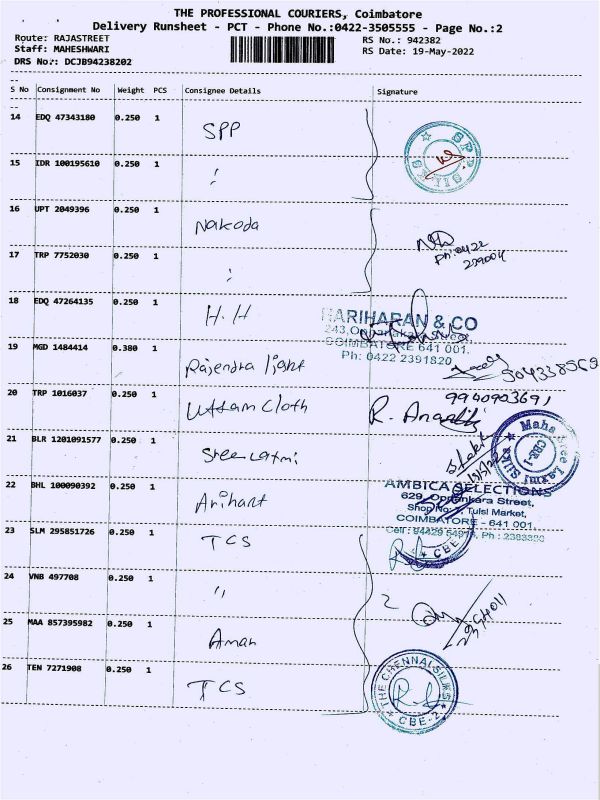 THE PROFESSIONAL COURIERS, Coimbatore
Delivery Runsheet - PCT - Phone No.:0422-3505555 - Page No.:2
Route: RAJASTREET
RS No.: 942382
Staff: MAHESHWARI
RS Date: 19-May-2022
DRS No.: DCJB94238202
S No Consignment No Weight PCS Consignee Details Signature
14 EDQ 47343180 0.250 1 SPP
15 IDR 100195610 0.250 1 "
16 UPT 2049396 0.250 1 Nakoda
Ph: 0422
17 TRP 7752030 0.250 1 "
18 EDQ 47264135 0.250 1 H.H
HARIHARAN & CO
COIMBATORE 641 001.
Ph: 0422 2391820
19 MGD 1484414 0.380 1 Rajendra light
9940903691
20 TRP 1016037 0.250 1 Uttam Cloth R.
21 BLR 1201091577 0.250 1 Sree Laxmi
CBE-1
22 BHL 100090392 0.250 1 Arihant
AMBICA SELECTIONS
629, Oppankara Street,
Shop No: Tulsi Market,
COIMBATORE - 641 001.
CBE
23 SLM 295851726 0.250 1 TCS
24 VNB 497708 0.250 1 "
25 MAA 857395982 0.250 1 Aman
26 TEN 7271908 0.250 1 TCS
THE CHENNAI SILKS
CBE-2